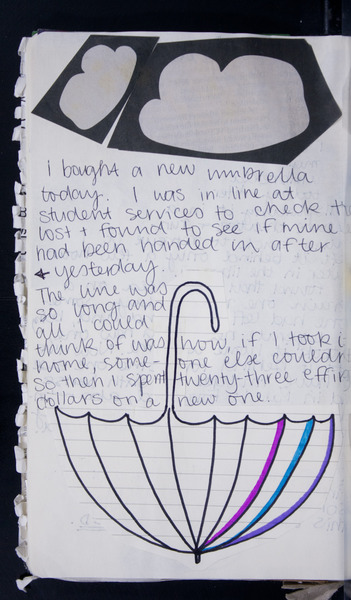 i bought a new umbrella
today. I was in line at
student services to check the
lost + found to see if mine
had been handed in after
yesterday.
The line was
so long and
all i could
think of was how, if I took i
home, some-one else couldn
so then I spent twenty-three effin
dollars on a new one.